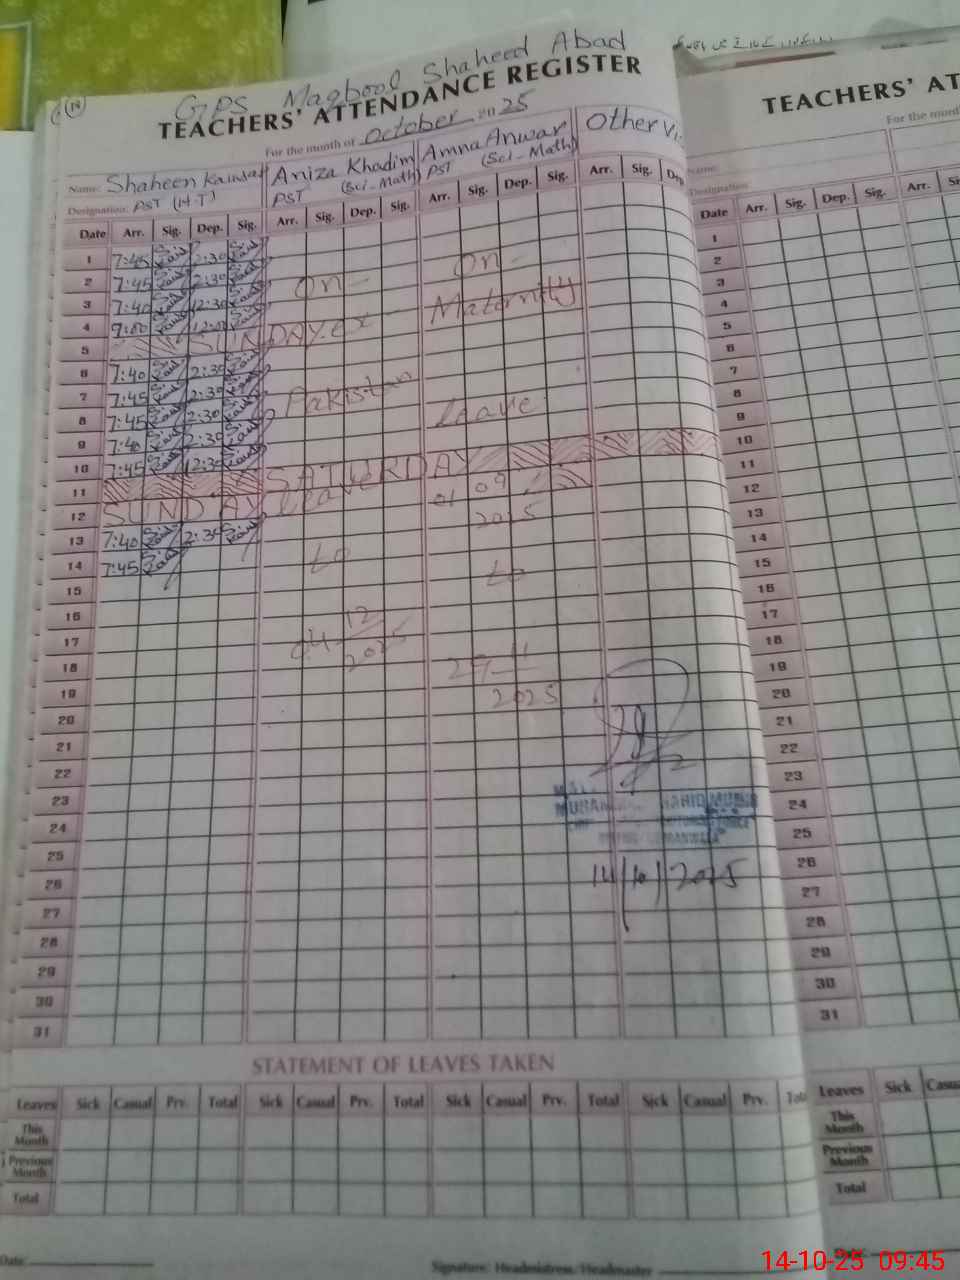 GPS Maqbool Shaheed Abad
TEACHERS' ATTENDANCE REGISTER
For the month of October 2025
Name: Shaheen Kausar Aniza Khadim Amna Anwar Other Vi
Designation: PST (H.T) PST (Sci-Math) PST (Sci-Math)
Date Arr. Sig. Dep. Sig. Arr. Sig. Dep. Sig. Arr. Sig. Dep. Sig. Arr. Sig. Dep
1 7:45 2:30
2 7:45 2:30 On - On -
3 7:40 12:30 Maternity
4 12:00
5 SUNDAY ex
6 7:40 2:30
7 7:45 2:30 Pakistan
8 7:45 2:30 Leave
9 7:40 2:30
10 7:45 12:30
11 SATURDAY
12 SUNDAY Leave 01 09
2025
13 7:40 2:30
14 7:45 to to
15
16 12
17 04 2025
18 29 11
19 2025
20
21
22
23
24
25
26
27
28
29
30
31
14/10/2025
STATEMENT OF LEAVES TAKEN
Leaves Sick Casual Prv. Total Sick Casual Prv. Total Sick Casual Prv. Total Sick Casual Prv. Tota
This Month
Previous Month
Total
Date: Signature: Headmistress/Headmaster
TEACHERS' AT
For the mont
Name:
Designation
Date Arr. Sig. Dep. Sig. Arr.
1
2
3
4
5
6
7
8
9
10
11
12
13
14
15
16
17
18
19
20
21
22
23
24
25
26
27
28
29
30
31
Leaves Sick Casua
This Month
Previous Month
Total
14-10-25 09:45